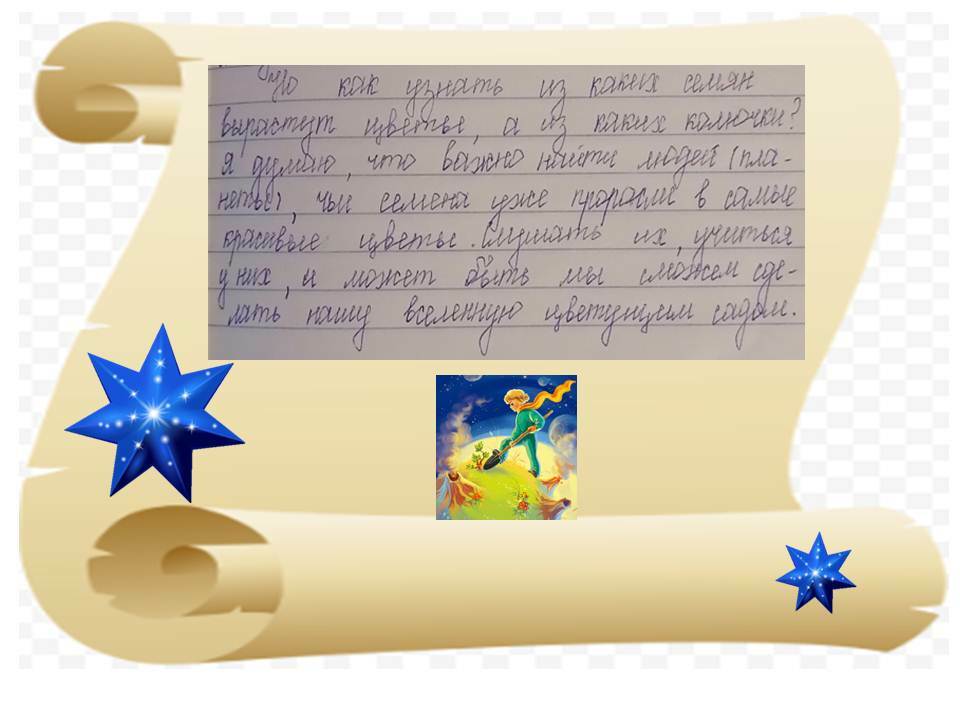 Но как узнать из каких семян
вырастут цветы, а из каких колючки?
Я думаю, что важно найти людей (пла-
неты), чьи семена уже проросли в самые
красивые цветы. Слушать их, учиться
у них, и может быть мы сможем сде-
лать нашу вселенную цветущим садом.